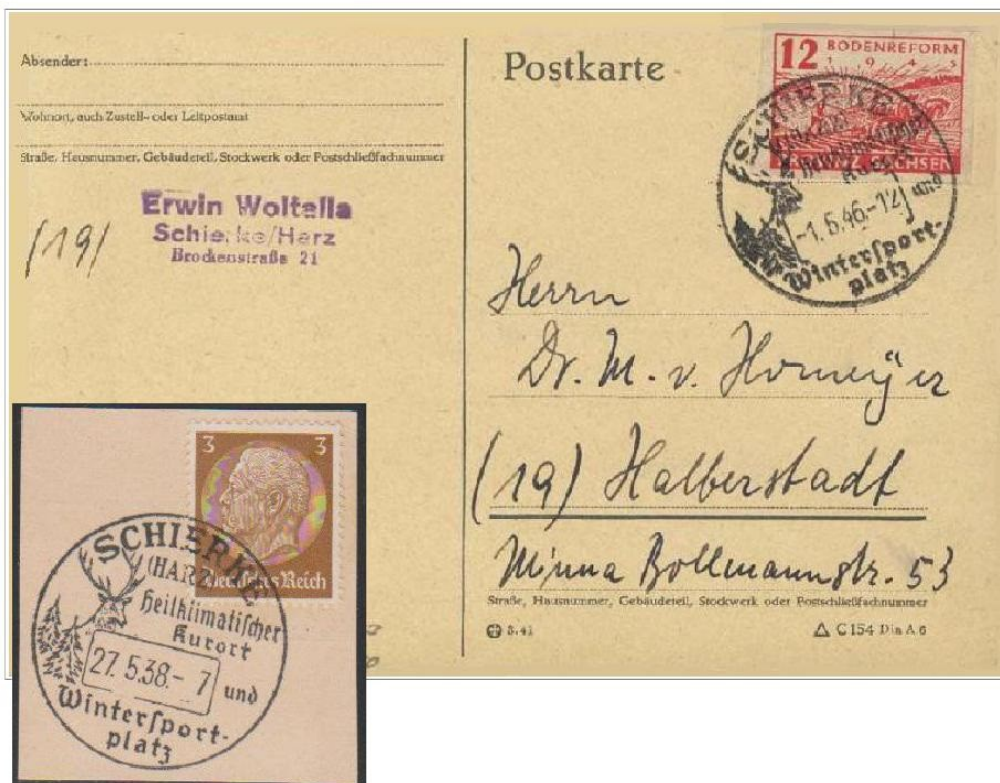 Absender:
Wohnort, auch Zustell- oder Leitpostamt
Straße, Hausnummer, Gebäudeteil, Stockwerk oder Postschließfachnummer
Erwin Woltella
Schierke/Harz
Brockenstraße 21
(19)
Postkarte
12 BODENREFORM
1945
SACHSEN
SCHIERKE
(HARZ)
Heilklimatischer
Kurort
-1.6.46.-12
und
Winterſport-
platz
Herrn
Dr. M. v. Homeÿer
(19) Halberstadt
Minna Bollmannstr. 53
Straße, Hausnummer, Gebäudeteil, Stockwerk oder Postschließfachnummer
5.41
C 154 Din A 6
3 3
Deutsches Reich
SCHIERKE
(HARZ)
Heilklimatiſcher
Kurort
27.5.38.- 7
und
Winterſport-
platz